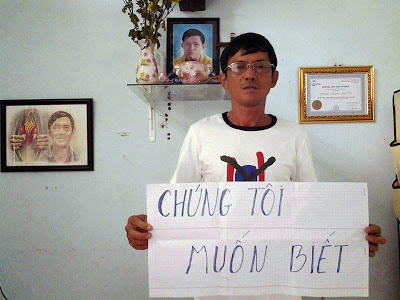 CHÚNG TÔI
MUỐN BIẾT